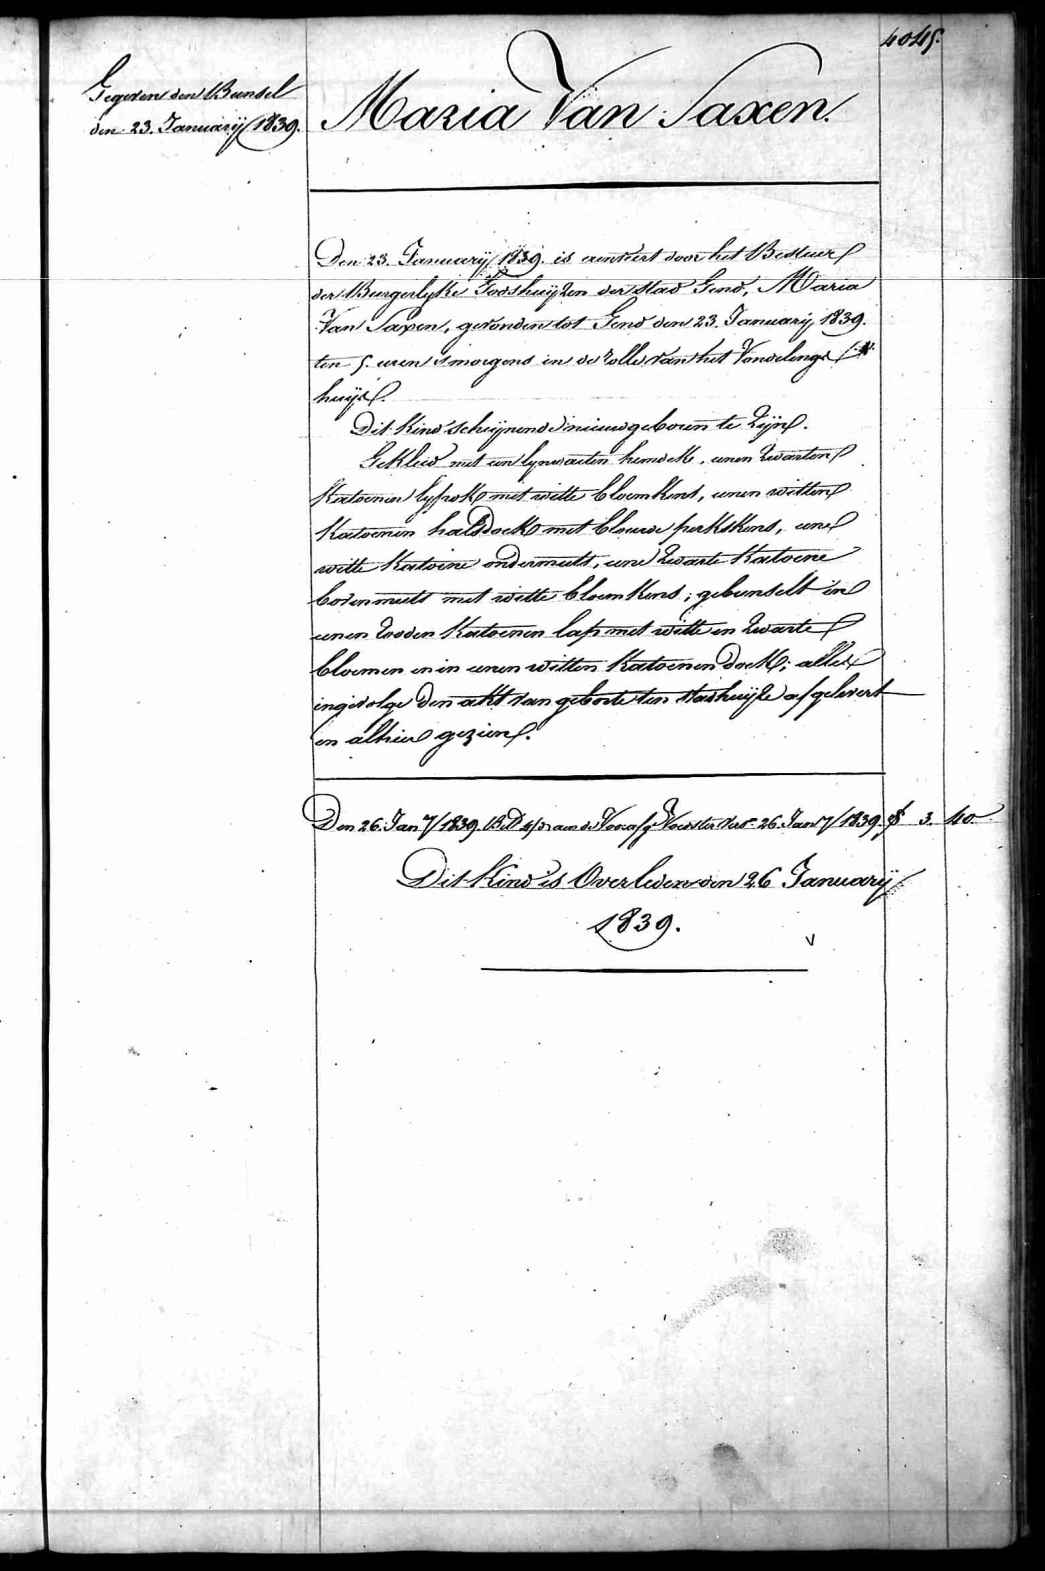 4045.
Gegeven den Bunsel
den 23. Januarij 1839.
Maria Van Saxen.
Den 23. Januarij 1839. is aenveert door het Bestuer
der Burgerlyke Godshuijzen der stad Gend, Maria
Van Saxen, gevonden tot Gend den 23. Januarij 1839.
ten 5. uren smorgens in de rolle van het Vondelings
huijs.
Dit kind scheijnende nieuwgeboren te zijn.
Gekleed met een lynwaeten hemdek, eenen zwarten
Katoenen lyfrok met witte bloemkens, eenen witten
Katoenen halsdoek met blauwe perkskens, eene
witte Katoene ondermuts, eene zwarte Katoene
bovenmuts met witte bloemkens; gebunselt in
eenen rooden Katoenen lap met witte en zwarte
bloemen en in eenen witten Katoenen doek; alles
ingevolge den akt van geboorte ten stadhuijze afgelevert
en alhier gezien.
Den 26. Jany/1839. aen de Voedster 26. Jany/1839. 3. 40.
Dit Kind is Overleden den 26 Januarij
1839.